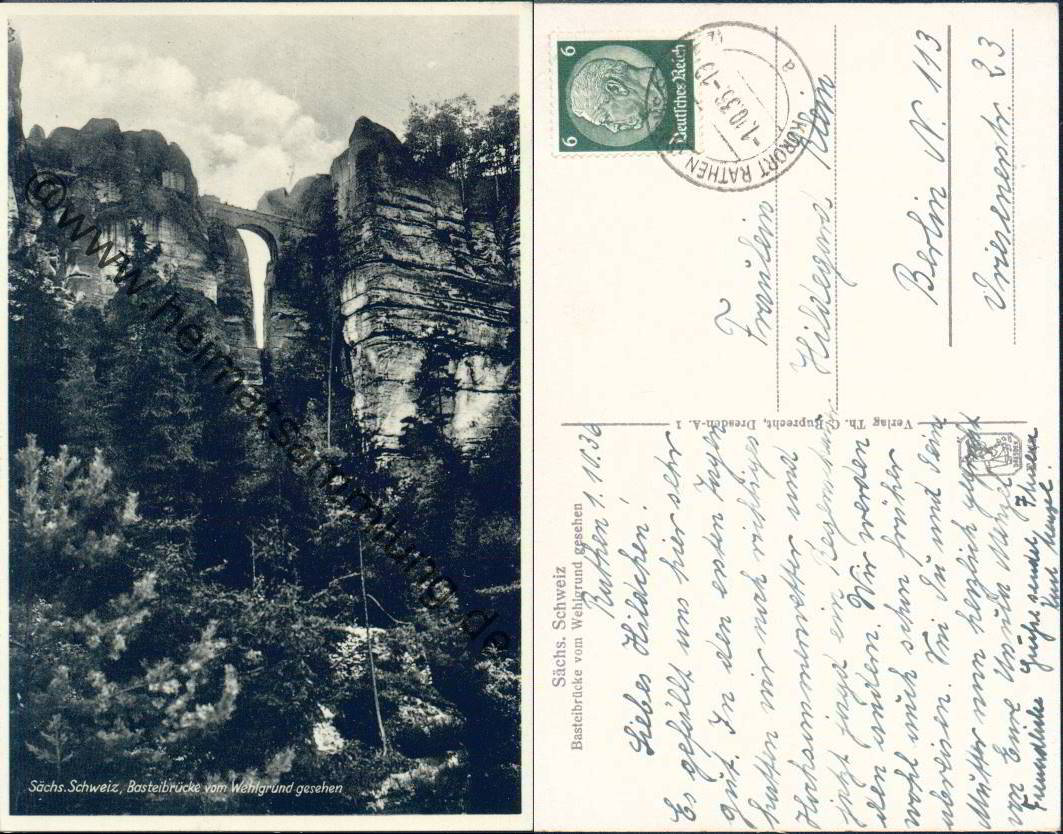 Sächs. Schweiz, Basteibrücke vom Wehlgrund gesehen
@www.heimatsammlung.de
6
6
Deutsches Reich
KURORT RATHEN
-1.10.36.-13
a
Fräulein
Hildegard
Berlin N. 113
23
Verlag Th. G. Ruprecht, Dresden-A. 1
Sächs. Schweiz
Basteibrücke vom Wehlgrund gesehen
Rathen 1.10.36
Liebes Hildchen!
Es gefällt uns hier sehr
gut. In den ersten Tagen
hatten wir noch richtiges
Hochsommerwetter und
jetzt jagd ein
den andern. Wir werden
wohl auch schon früher
abreisen. Sei Du und Deine
Mutter nun herzlich gegrüßt
von Eure
Freundliche Grüße sendet